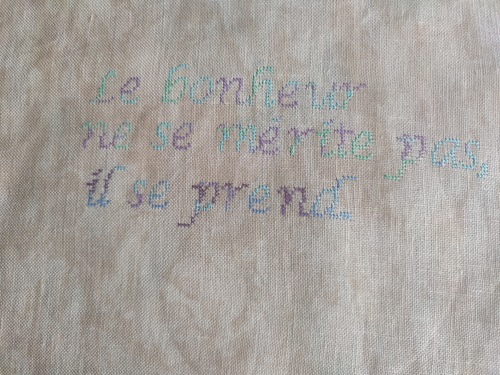 Le bonheur
ne se mérite pas,
il se prend.